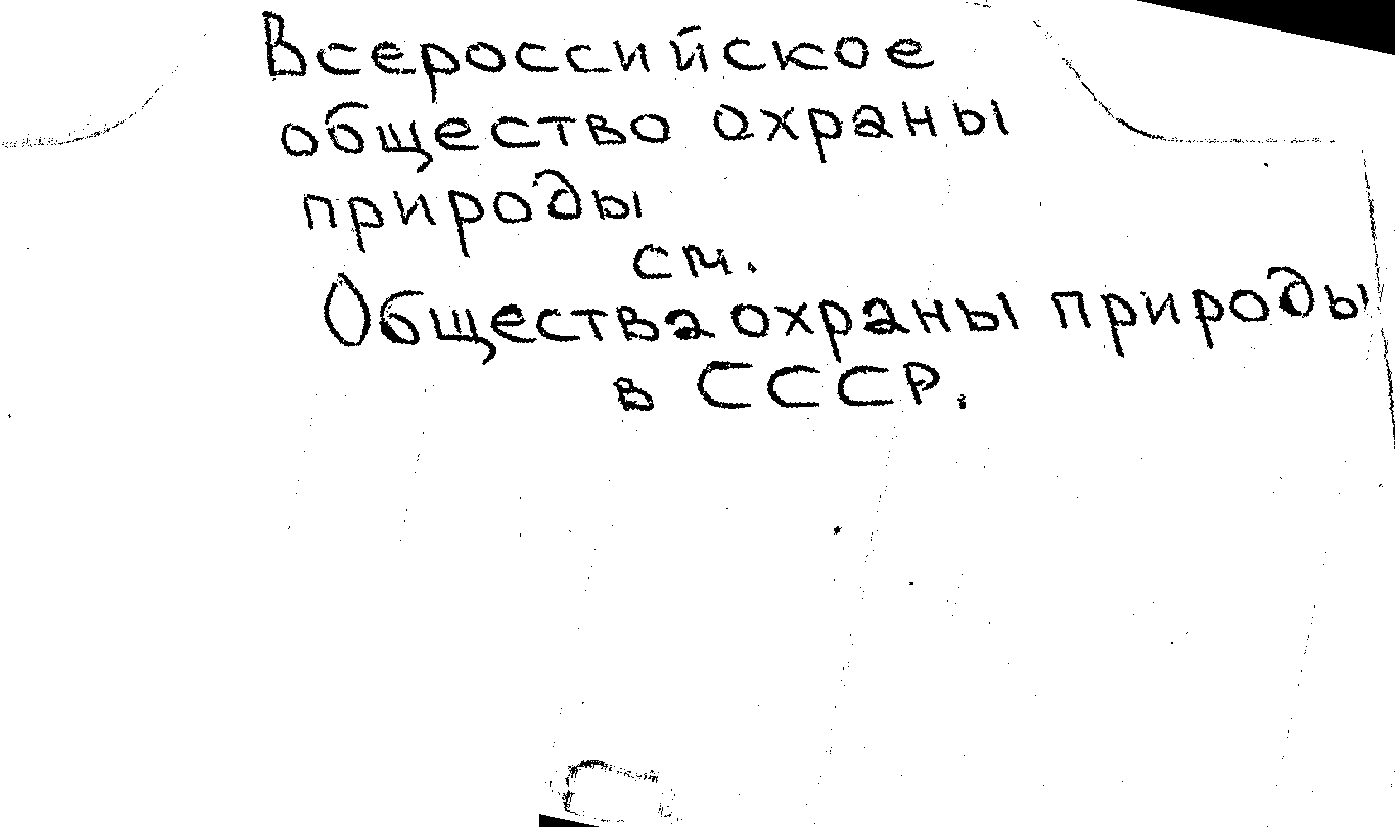 Всероссийское
общество охраны
природы
см.
Общества охраны природы
в СССР.